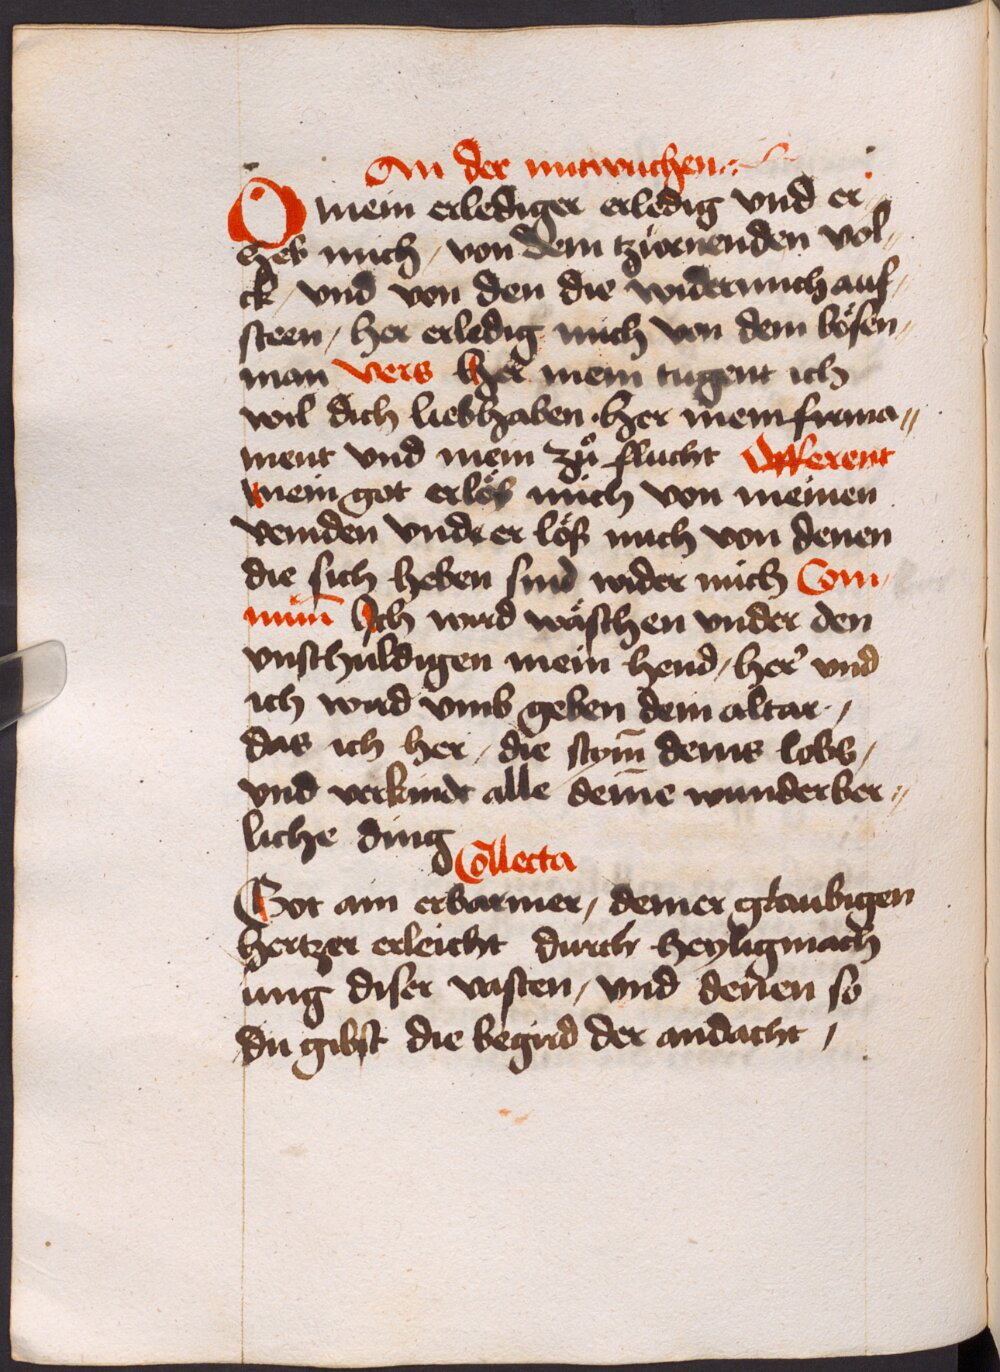 An der mitwuchen
O mein erlediger erledig vnd er
heb mich / von dem tzürnenden vol„
ck / vnd von den die widermich auf„
steen / her erledig mich von dem bösen„
man vers Her mein tugent ich
wil dich liebhaben · her mein firma„
ment vnd mein zů flucht Offerent
Mein got erlöß mich von meinen
veinden vnde er löß mich von denen
die sich heben sind wider mich Com„
mun̄ Ich wird wäschen vnder den
vnschuldigen mein hend / her vnd
ich wird vmb geben dein altar /
das ich her / die stym̄ deins lobs /
vnd verkündt alle dein̄e wunderber„
liche ding
Collecta
Got ain erbarmer / deiner glaubigen
hertzer erleicht durch heyligmach
ung diser vasten / vnd denen so
du gibst die begird der andacht /